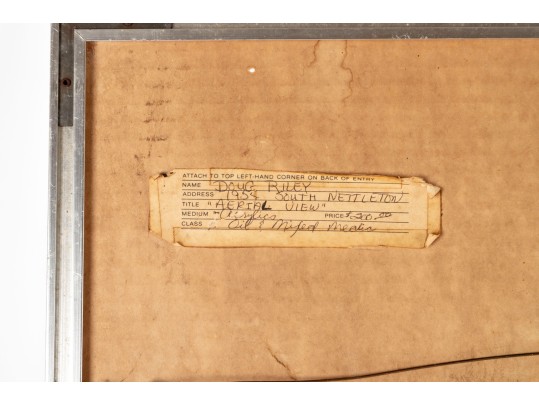 ATTACH TO TOP LEFT-HAND CORNER ON BACK OF ENTRY
NAME DOUG RILEY
ADDRESS 1958 SOUTH NETTLETON
TITLE "AERIAL VIEW"
MEDIUM Acrylics PRICE $200.00
CLASS Oil & Mixed Media